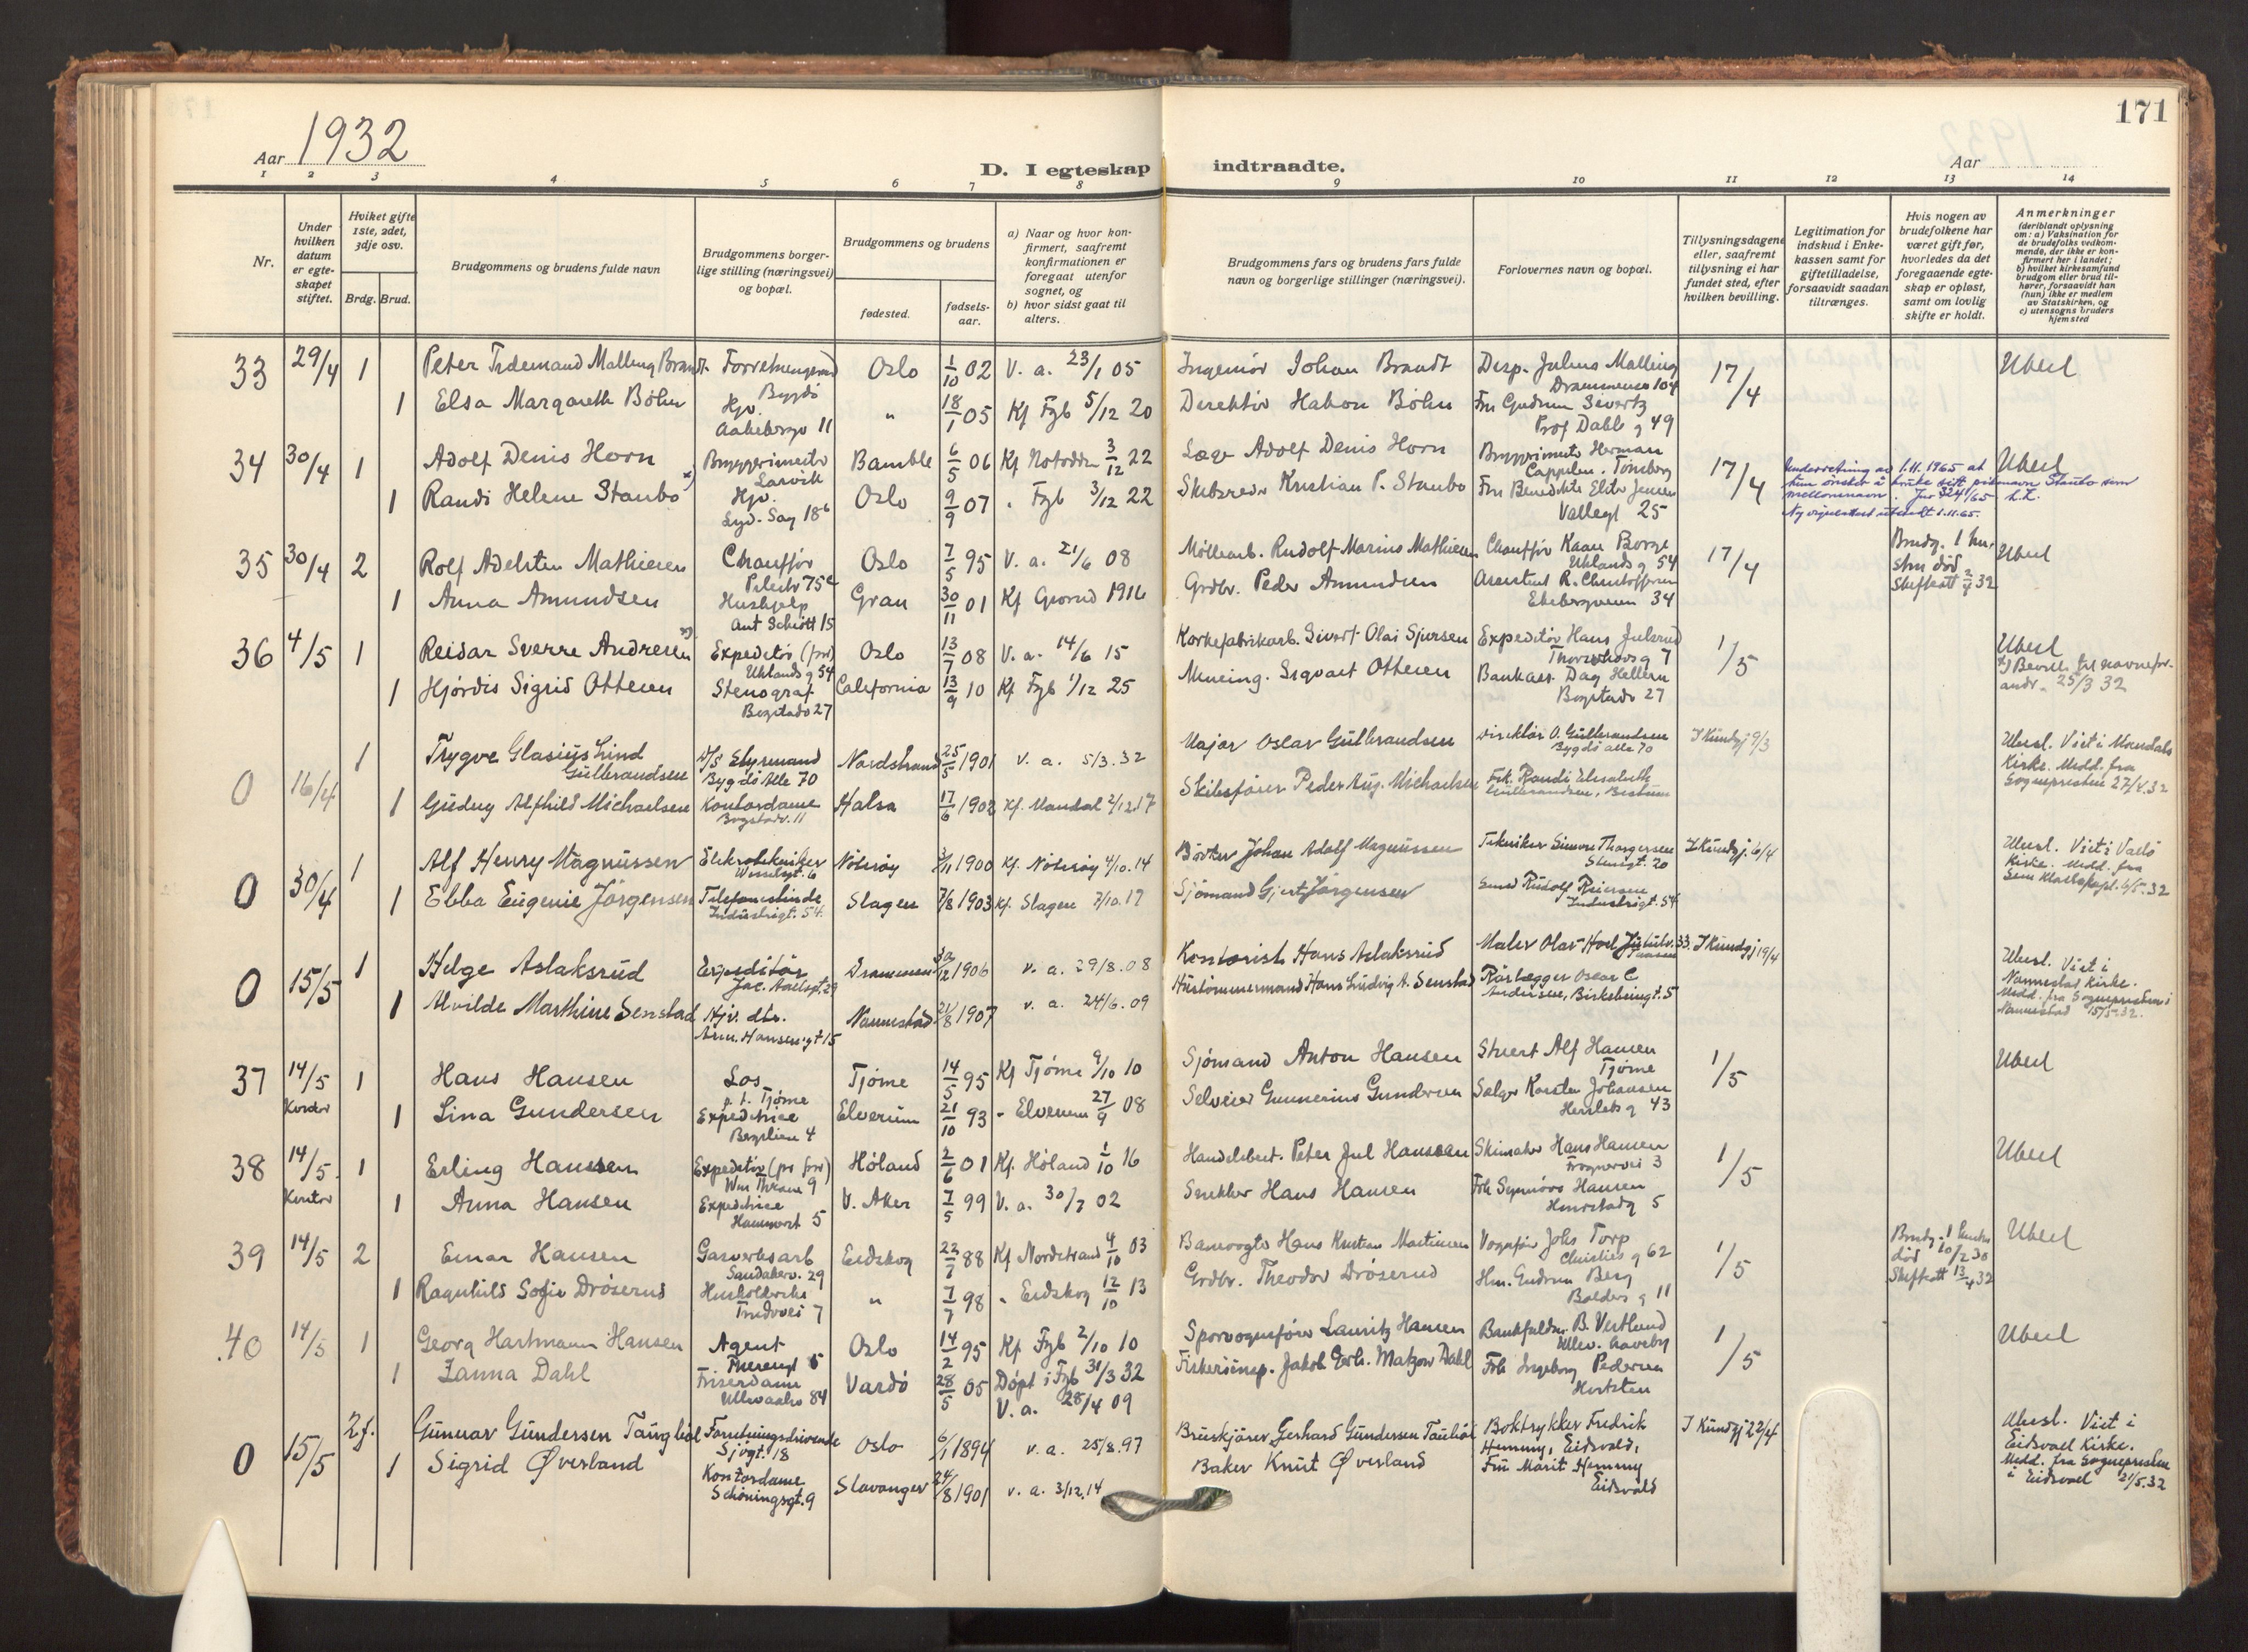 171
Aar 1932
D. I egteskap indtraadte.
Aar
1 2 3 4 5 6 7 8 9 10 11 12 13 14
Nr.
Under hvilken datum er egteskapet stiftet.
Hviket gifte 1ste, 2det, 3dje osv.
Brdg. Brud.
Brudgommens og brudens fulde navn
Brudgommens borgerlige stilling (næringsvei) og bopæl.
Brudgommens og brudens
fødested.
fødselsaar.
a) Naar og hvor konfirmert, saafremt konfirmationen er foregaat utenfor sognet, og
b) hvor sidst gaat til alters.
Brudgommens fars og brudens fars fulde navn og borgerlige stillinger (næringsvei).
Forlovernes navn og bopæl.
Tillysningsdagene eller, saafremt tillysning ei har fundet sted, efter hvilken bevilling.
Legitimation for indskud i Enkekassen samt for giftetilladelse, forsaavidt saadan tiltrænges.
Hvis nogen av brudefolkene har været gift før, hvorledes da det foregaaende egteskap er opløst, samt om lovlig skifte er holdt.
Anmerkninger
(deriblandt oplysning om: a) Vaksination for de brudefolks vedkommende, der ikke er konfirmert her i landet;
b) hvilket kirkesamfund brudgom eller brud tilhører, forsaavidt han (hun) ikke er medlem av Statskirken, og
c) utensogns bruders hjemsted
33 29/4 1 Peter Tidemand Malling Brandt Oslo 1/10 02 V. a. 23/1 05 Ingeniør Johan Brandt Disp. Julius Malling 17/4 Ubesl
Bygdö Drammensv 104
1 Elsa Margarethe Böhn Hjv. " 18/1 05 Kf Fgb 5/12 20 Direktör Hakon Böhn Fru Gudrun Sivertz
Aakebergv 11 Prof Dahls g 49
34 30/4 1 Adolf Denis Horn Bryggerimester Bamble 6/5 06 Kf Notodden 3/12 22 Læge Adolf Denis Horn Bryggerimester Herman 17/4 Ubesl
Larvik Cappelen. Tönsberg
1 Randi Helene Staubo x) Hjv. Oslo 9/9 07 " Fgb 3/12 22 Skibsreder Kristian P. Staubo Fru Benedikte Elster Jensen
Lyd. Sag 18 b Vallegt 25
Underretning av 1.11.1965 at hun ønsker å bruke sitt pikenavn Staubo som mellomnavn. Jnr 324/65
Ny vigselattest utsendt 1.11.65.
35 30/4 2 Rolf Adelsten Mathiesen Chauffør Oslo 7/5 95 V. a. 21/6 08 Möllearb. Rudolf Marius Mathiesen Chauffør Kaare Borge 17/4 Brudg. 1 hustru död Ubesl
Pilestr 75 c Uelands g 54 Skifteatt 2/4 32
1 Anna Amundsen Hushjelp Gran 30/11 01 Kf Grorud 1916 Grdbr. Peder Amundsen R. Christoffersen
Ant Schiøtt 15 Ekebergveien 34
36 4/5 1 Reidar Sverre Andresen x) Expeditör Oslo 13/7 08 V. a. 14/6 15 Korkefabrikarb. Sivert Olai Sjursen Expeditör Hans Julsrud 1/5 Ubesl
Uelands g 54 g 7 x) Bevill. for navneforandr. 25/3 32
1 Hjördis Sigrid Ottesen Stenograf California 13/9 10 Kf Fgb 1/12 25 Sigvart Ottesen Bankass. Dag Hellem
Bogstadv 27 Bogstadv 27
0 16/4 1 Trygve Glasius Lind Gulbrandsen D/S Styrmand Nordstrand 25/5 1901 v. a. 5/3. 32 Major Oscar Gulbrandsen Direktör O. Gulbrandsen I Kundgj 9/3 Ubesl. Viet i Mandals
Bygdö Alle 70 Bygdö alle 70 Kirke. Medd. fra
1 Gudny Alfhild Michaelsen Kontordame Halsa 17/6 1902 Kf. Mandal 2/12.17 Skibsfører Peder Aug. Michaelsen Frk. Randi Elisabeth Sognepresten 27/4.32
Bogstadv. 11 Gulbrandsen, Bestum
0 30/4 1 Alf Henry Magnussen Elektrotekniker Nöteröy 3/11 1900 Kf. Nöteröy 4/10.14 Bödker Johan Adolf Magnussen Tekniker Simon Thorgersen I Kundgj. 6/4 Ubesl. Viet i Vallö
Wesselsgt. 6 Stensgt. 20 Kirke. Medd. fra
1 Ebba Eugenie Jörgensen Telefonistinde Slagen 7/8 1903 Kf. Slagen 7/10.17 Sjömand Gjert Jörgensen Smed Rudolf Reiersen Sem
Industrigt. 54. Industrigt. 54
0 15/5 1 Helge Aslaksrud Expeditör Drammen 30/12 1906 v. a. 29/8. 08 Kontorist Hans Aslaksrud Maler Olav I Kundgj 19/4 Ubesl. Viet i
Jac. Aallsgt. 29 Nannestad Kirke.
1 Alvilde Marthine Senstad Hjv. dtr. Nannestad 21/8 1907 v. a. 24/6. 09 Hustömmermand Hans Ludvig A. Senstad Rörlegger Oscar C. Andersen, Birkebeinergt. 5 Medd. fra Sognepresten i
Arn. Hansensgt 15 Nannestad 15/5.32.
37 14/5 1 Hans Hansen Los Tjöme 14/5 95 Kf Tjöme 9/10 10 Sjömand Anton Hansen Stuert Alf Hansen 1/5 Ubesl
p. t. Tjöme Tjöme
Kontor 1 Lina Gundersen Expeditrice Elverum 21/10 93 " Elverum 27/9 08 Selveier Gunnerius Gundersen Selger Karsten Johansen
Bergslien 4 Herslebs g 43
38 14/5 1 Erling Hanssen Expeditör Höland 2/6 01 Kf. Höland 1/10 16 Handelsbest. Peter Jul Hanssen Skimaker Hans Hansen 1/5 Ubesl
Wm Thrane 9 Frognervei 3
Kontor 1 Anna Hansen Expeditrice V. Aker 7/5 99 V. a. 30/7 02 Snekker Hans Hansen Frk Synnöve Hansen
5
39 14/5 2 Einar Hansen Gasverksarb Eidskog 22/7 88 Kf Nordstrand 4/10 03 Banevogter Hans Kristian Martinsen Vognför Johs Torp 1/5 Brudg. 1 hustru Ubesl
Sandakerv. 29 Christies g 62 död 10/2 30
1 Ragnhild Sofie Dröserud Husholderske " 7/7 98 " Eidskog 12/10 13 Grdbr. Theodor Dröserud Hm. Gudrun Berg Skifteatt 13/4 32
Trudvei 7 Balders g 11
40 14/5 1 Georg Hartmann Hansen Agent Oslo 14/2 95 Kf Fgb 2/10 10 Sporvognsfører Lauritz Hansen Bankfuldm. B. Vestlund 1/5 Ubesl
Theresegt 5 Ullev. haveby
1 Zanna Dahl Friserdame Vardö 28/5 05 Döpt i Fgb 31/3 32 Fiskeriinsp. Jakob Gerh. Matzow Dahl Frk Ingeborg Pedersen
Ullevaalsv 84 V. a. 28/4 09
0 15/5 2 f. Gunnar Gundersen Taugböl Forretningsdrivende Oslo 6/1 1894 v. a. 25/8. 97 Gerhard Gundersen Taugböl Boktrykker Fredrik I Kundgj 22/4 Ubesl. Viet i
Sjögt. 18 Hemmy, Eidsvold, Eidsvoll Kirke.
1 Sigrid Øverland Kontordame Stavanger 24/8 1901 v. a. 3/12.14 Baker Knut Øverland Fru Marit Hemmy Medd. fra Sognepresten
Schöningsgt. 9 Eidsvold i Eidsvoll 21/5.32